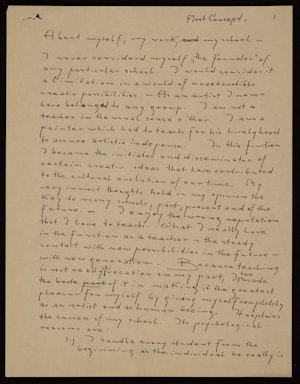 First Concept. 1
About myself, my work, and my school —
I never considered myself "the founder" of
any particular school. I would consider it
a limitation in a world of inexhaustible
creative possibilities. As an artist I never
have belonged to any group. I am not a
teacher in the usual sense either. I am a
painter which had to teach for his livelyhood
to assure artistic independense. In this function
I became the initiator and disseminator of
certain creativ ideas that have contributed
to the cultural evolution of our time. My
very inmost thoughts, hold in my opinion the
Key to many schools, past, present and of the
future. — I enjoy the wrong reputation
that I love to teach. What I really love
in the function as a teacher is the steady
contakt with new possibilities in the future —
with new generation. Because teaching
is not really vocation on my part, I made
the best part of it in making it the greatest
pleasure for myself by giving myself completely
as an artist and as human beeing. It explains
the success of my school. The psychological
reasons are:
1) I handle every student from the
beginning as the individual he really is